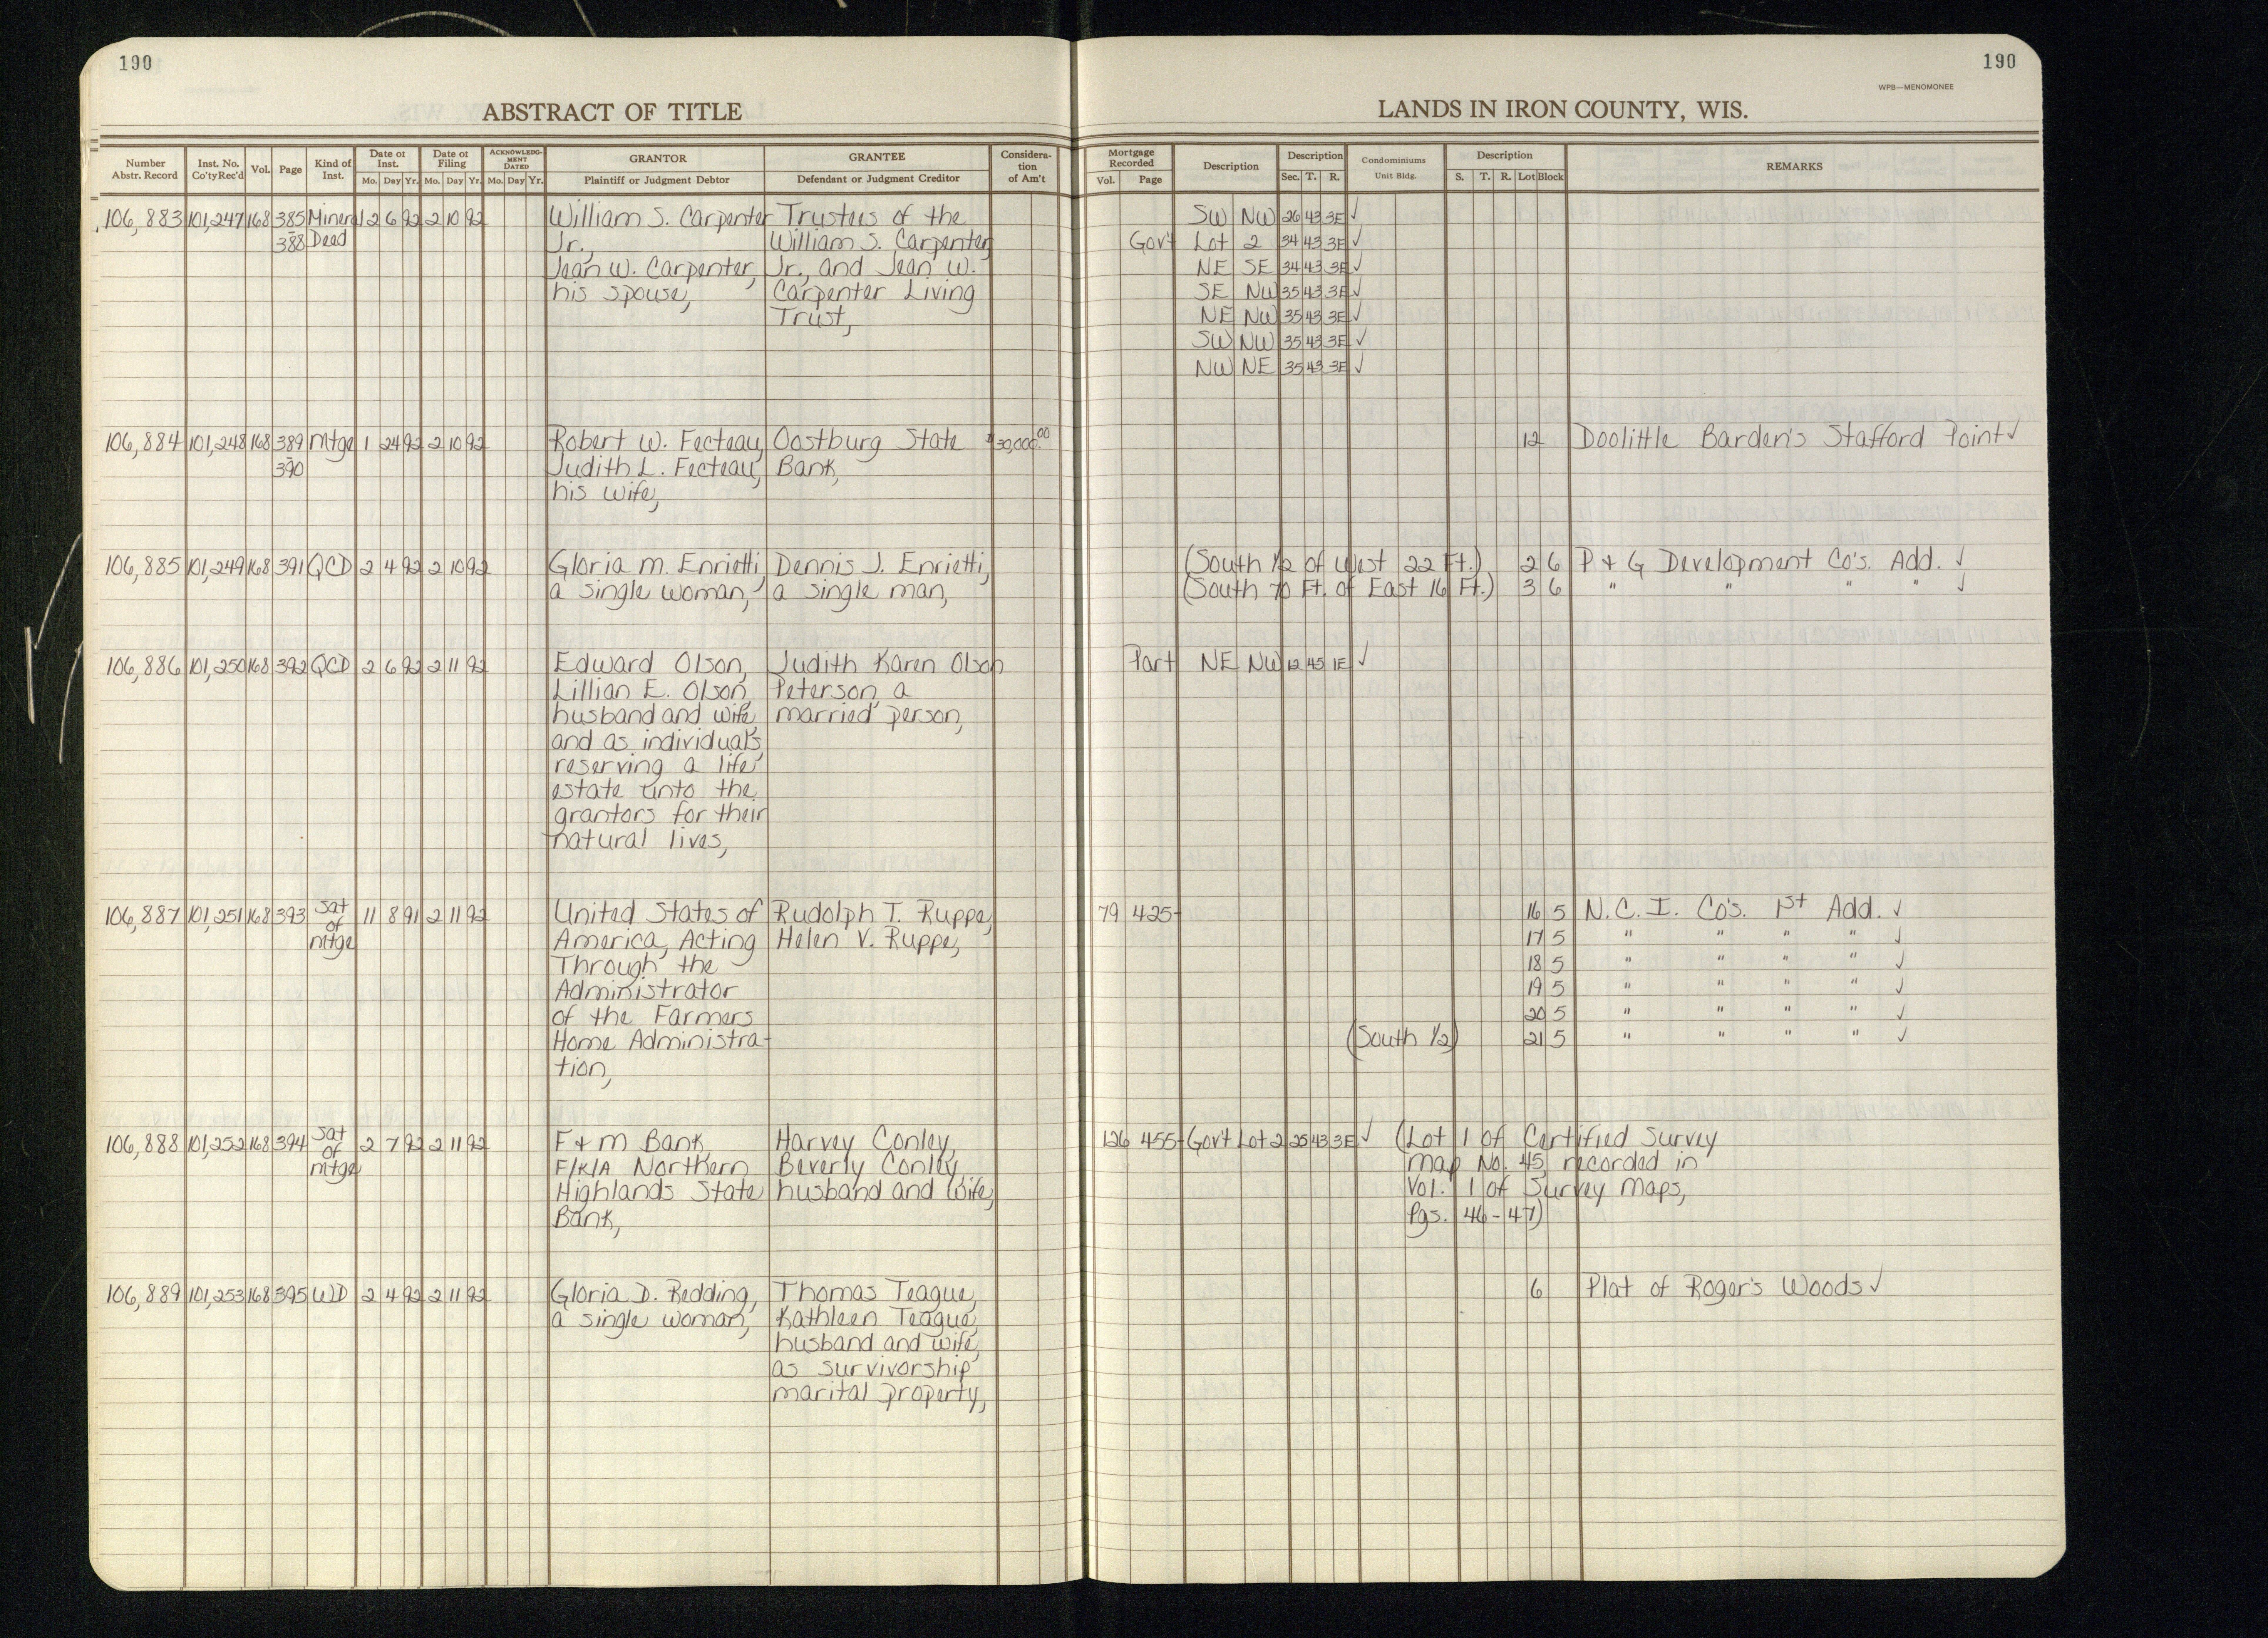 190
190
WPB—MENOMONEE
ABSTRACT OF TITLE
LANDS IN IRON COUNTY, WIS.
Number Abstr. Record | Inst. No. Co'ty Rec'd | Vol. | Page | Kind of Inst. | Date of Inst. Mo. Day Yr. | Date of Filing Mo. Day Yr. | ACKNOWLEDGMENT DATED Mo. Day Yr. | GRANTOR Plaintiff or Judgment Debtor | GRANTEE Defendant or Judgment Creditor | Consideration of Am't | Mortgage Recorded Vol. Page | Description | Description Sec. T. R. | Condominiums Unit Bldg. | Description S. T. R. Lot Block | REMARKS
106,883 101,247 168 385 Mineral 2 6 92 2 10 92 William S. Carpenter Trustees of the SW NW 26 43 3E ✓
- 388 Deed Jr., William S. Carpenter Gov't Lot 2 34 43 3E ✓
Jean W. Carpenter, Jr., and Jean W. NE SE 34 43 3E ✓
his spouse, Carpenter Living SE NW 35 43 3E ✓
Trust, NE NW 35 43 3E ✓
SW NW 35 43 3E ✓
NW NE 35 43 3E ✓
106,884 101,248 168 389 Mtge 1 24 92 2 10 92 Robert W. Fecteau, Oostburg State $30,000.00 12 Doolittle Barden's Stafford Point ✓
- 390 Judith L. Fecteau, Bank,
his wife,
106,885 101,249 168 391 QCD 2 4 92 2 10 92 Gloria M. Enrietti, Dennis J. Enrietti, (South 1/2 of West 22 Ft.) 2 6 P & G Development Co's. Add. ✓
a single woman, a single man, (South 70 Ft. of East 16 Ft.) 3 6 " " " " ✓
106,886 101,250 168 392 QCD 2 6 92 2 11 92 Edward Olson, Judith Karen Olson Part NE NW 12 45 1E ✓
Lillian E. Olson, Peterson, a
husband and wife, married person,
and as individuals,
reserving a life
estate unto the
grantors for their
natural lives,
106,887 101,251 168 393 Sat of Mtge 11 8 91 2 11 92 United States of Rudolph T. Ruppe, 79 425 16 5 N. C. I. Co's. 1st Add. ✓
America, Acting Helen V. Ruppe, 17 5 " " " " ✓
Through the 18 5 " " " " ✓
Administrator 19 5 " " " " ✓
of the Farmers 20 5 " " " " ✓
Home Administra- (South 1/2) 21 5 " " " " ✓
tion,
106,888 101,252 168 394 Sat of Mtge 2 7 92 2 11 92 F & M Bank, Harvey Conley, 126 455 Gov't Lot 2 25 43 3E ✓ (Lot 1 of Certified Survey
F/K/A Northern Beverly Conley, Map No. 45, recorded in
Highlands State husband and wife, Vol. 1 of Survey Maps,
Bank, Pgs. 46-47)
106,889 101,253 168 395 WD 2 4 92 2 11 92 Gloria D. Redding, Thomas Teague, 6 Plat of Roger's Woods ✓
a single woman, Kathleen Teague,
husband and wife,
as survivorship
marital property,